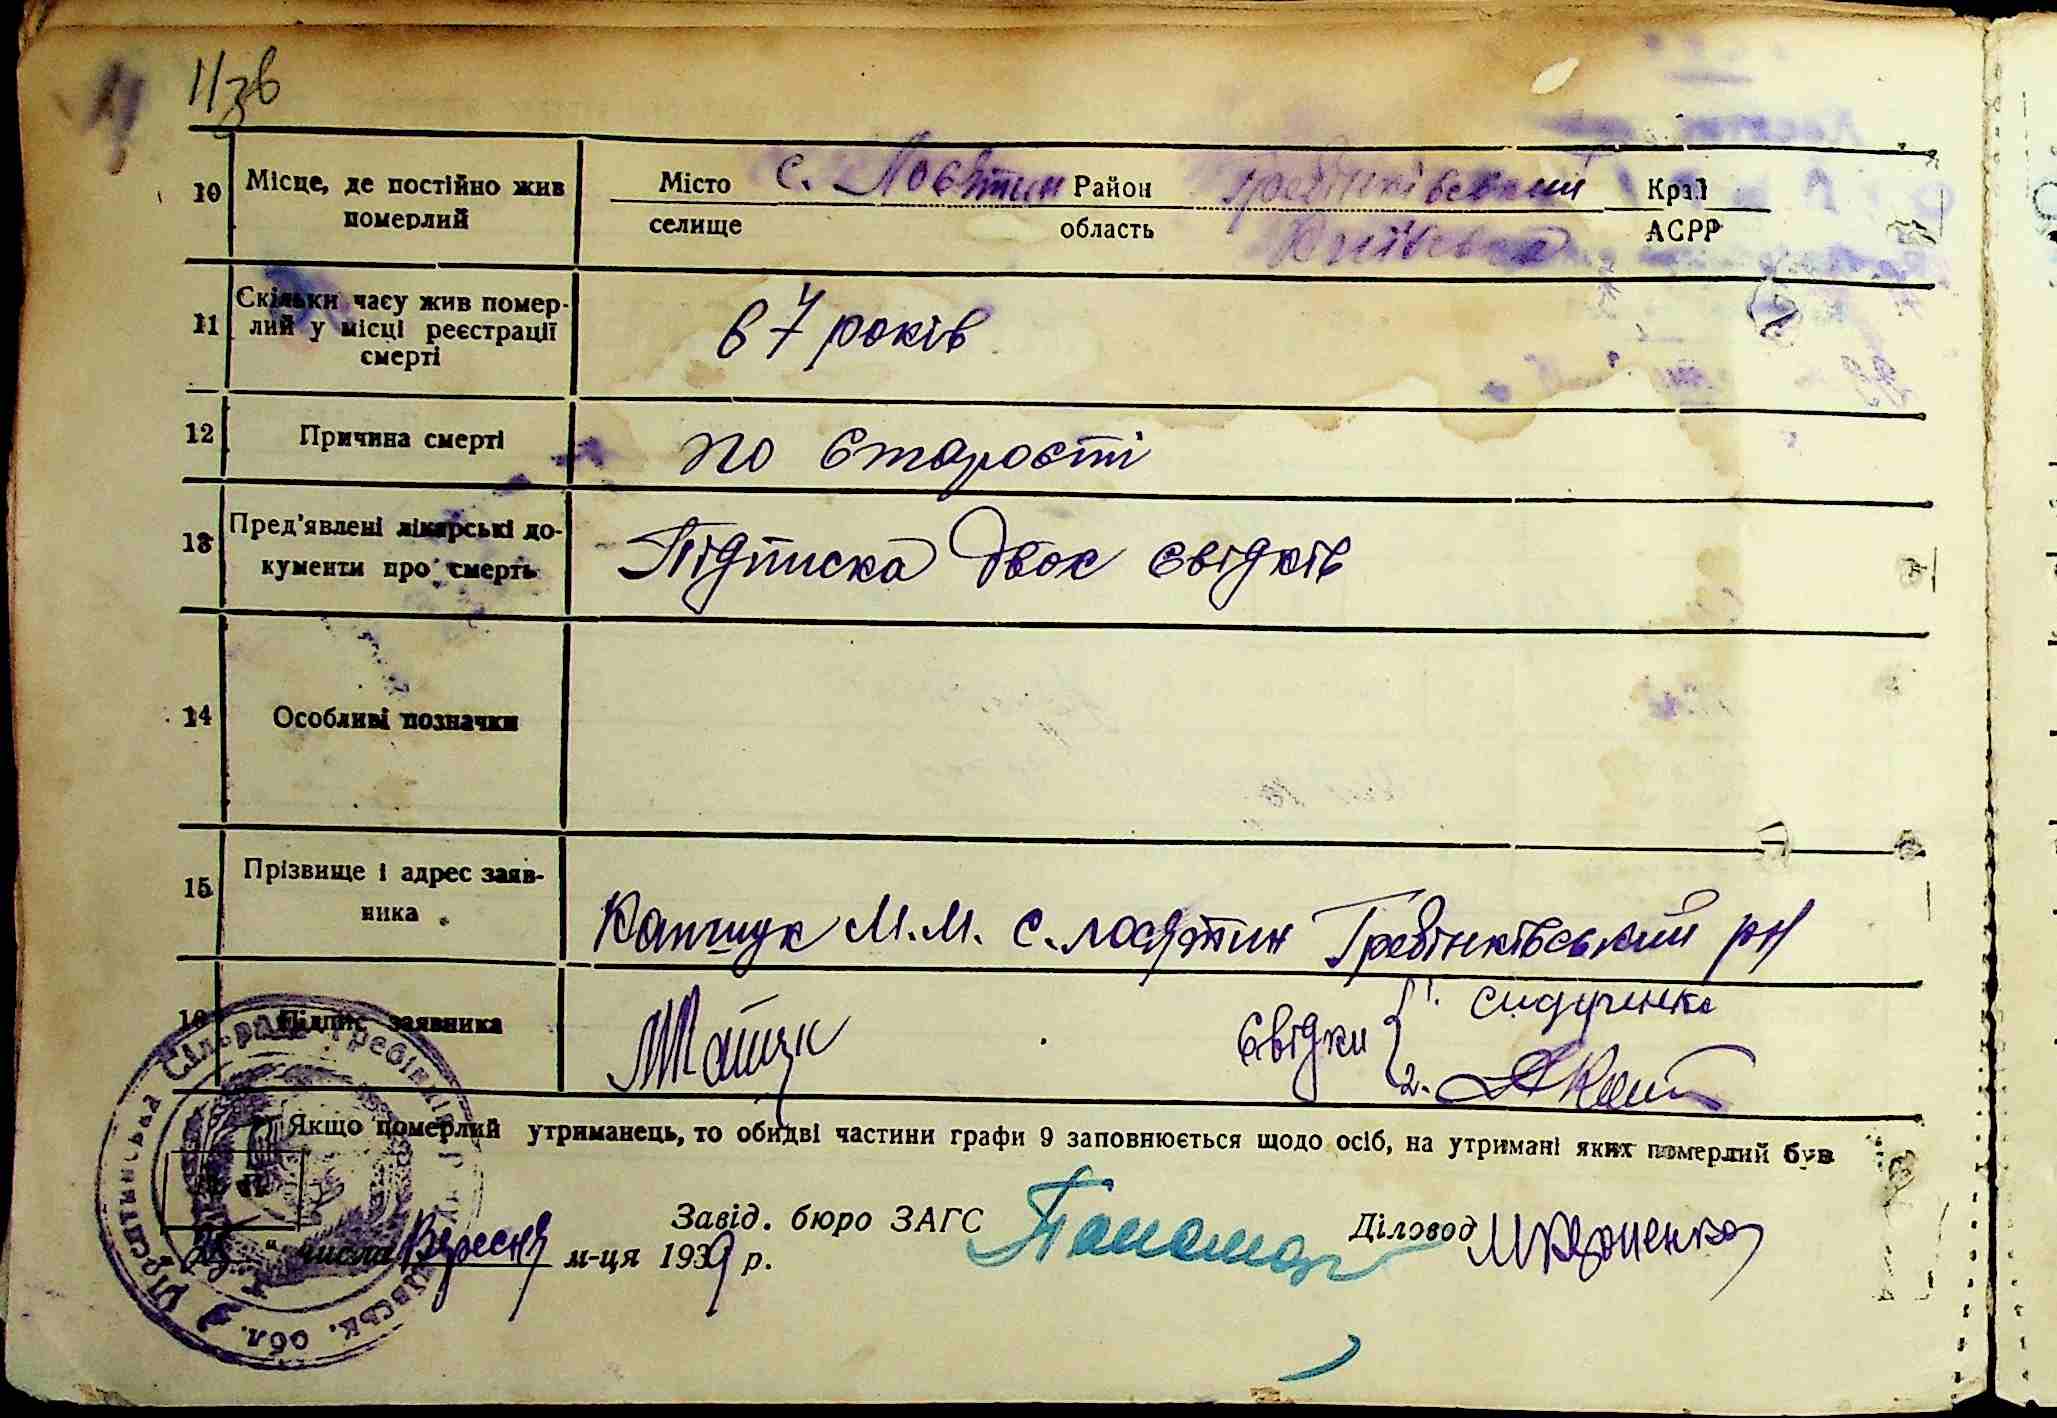 11зв
10 Місце, де постійно жив померлий
Місто с. Лосятин Район Гребінківський Край
селище область Київська АСРР
11 Скільки часу жив помер-
лий у місці реєстрації
смерті
67 років
12 Причина смерті
по старості
13 Пред'явлені лікарські до-
кументи про смерть
Підписка двох свідків
14 Особливі позначки
15 Прізвище і адрес заяв-
ника
Капшук М.М. с. Лосятин Гребінківський рн
16 Підпис заявника
свідки 1.
2.
Якщо померлий утриманець, то обидві частини графи 9 заповнюється щодо осіб, на утримані яких померлий був
Завід. бюро ЗАГС Діловод
числа Вересня м-ця 1939 р.